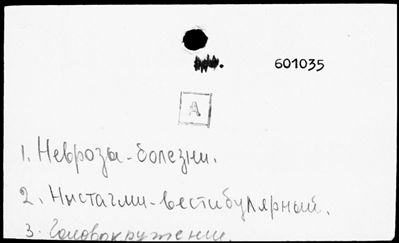 601035
A
1. Неврозы-болезни.
2. Нистагми-вестибулярный.
3. Головокружении.